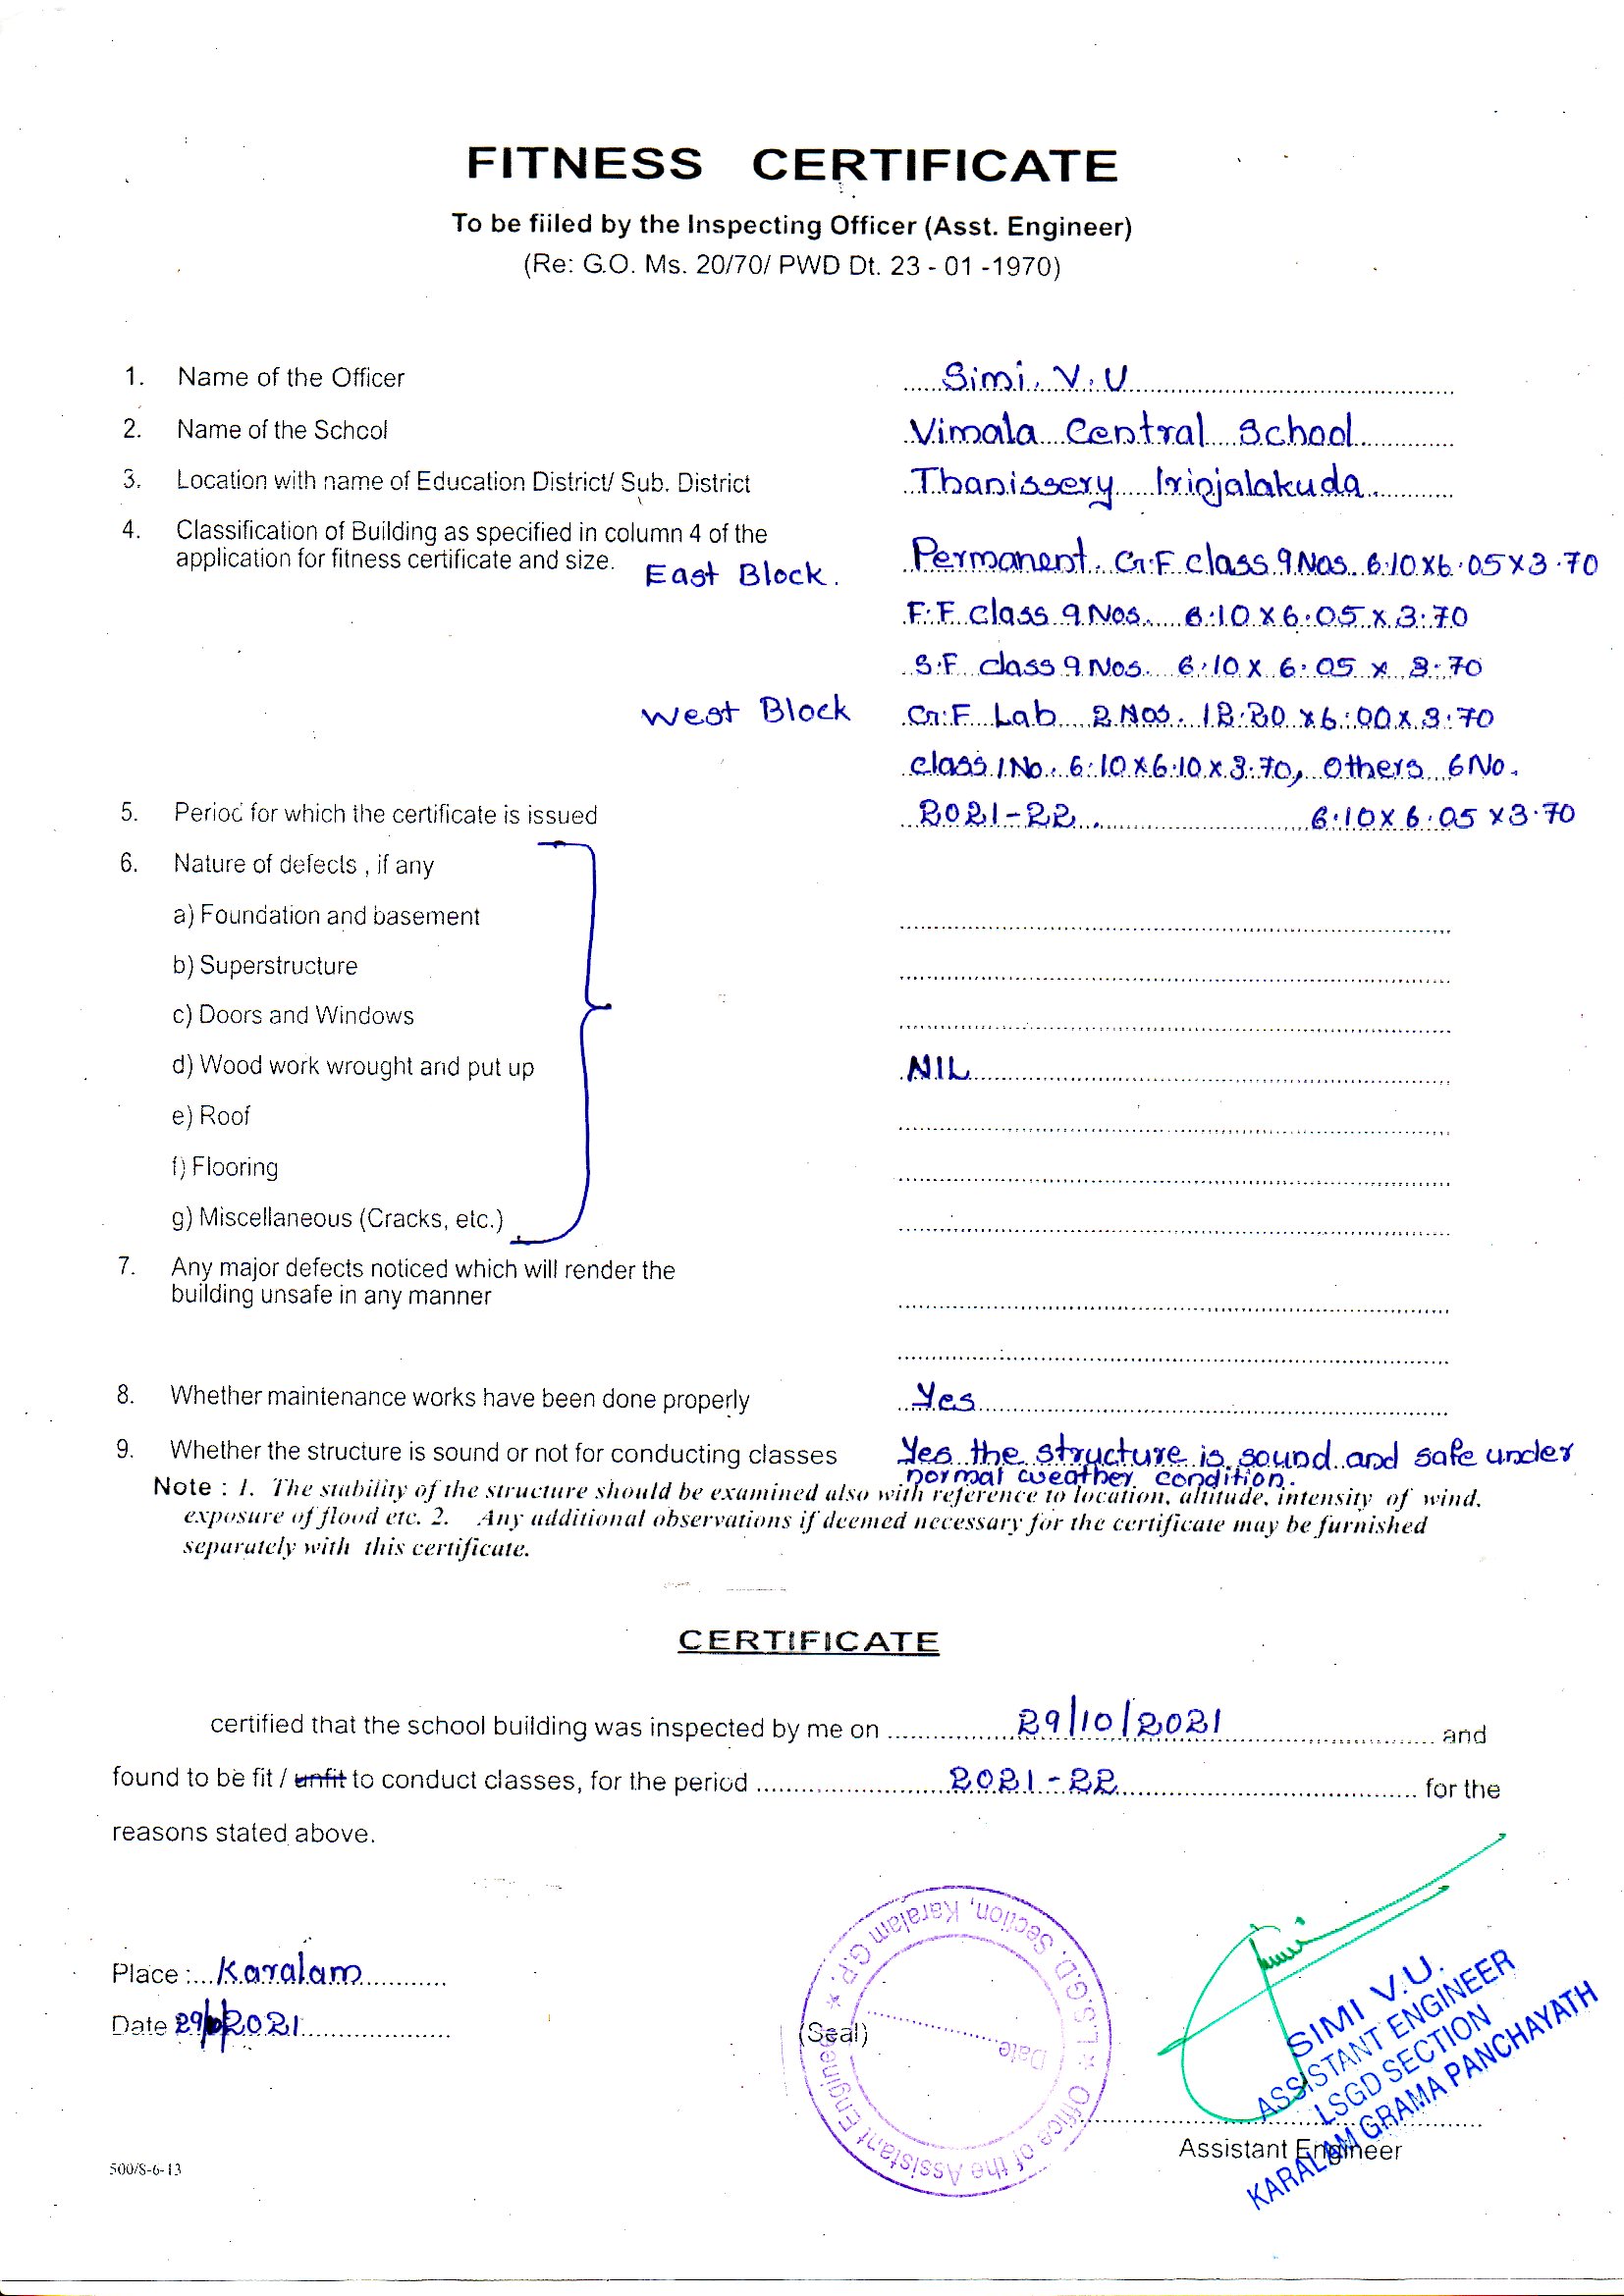 FITNESS CERTIFICATE
To be fiiled by the Inspecting Officer (Asst. Engineer)
(Re: G.O. Ms. 20/70/ PWD Dt. 23 - 01 -1970)
1. Name of the Officer Simi. V. U
2. Name of the School Vimala Central School
3. Location with name of Education District/ Sub. District Thanissery Irinjalakuda.
4. Classification of Building as specified in column 4 of the
application for fitness certificate and size. East Block. Permanent. Gr.F class 9 Nos. 6.10x6.05x3.70
F.F. class 9 Nos. 6.10 x 6.05 x 3.70
S.F. class 9 Nos. 6.10 x 6.05 x 3.70
West Block Gr.F Lab 2 Nos. 12.20 x 6.00 x 3.70
class 1 No. 6.10x6.10x3.70, Others 6 No.
5. Period for which the certificate is issued 2021-22. 6.10x6.05x3.70
6. Nature of defects , if any
a) Foundation and basement
b) Superstructure
c) Doors and Windows
d) Wood work wrought and put up NIL
e) Roof
f) Flooring
g) Miscellaneous (Cracks, etc.)
7. Any major defects noticed which will render the
building unsafe in any manner
8. Whether maintenance works have been done properly Yes
9. Whether the structure is sound or not for conducting classes Yes the structure is sound and safe under
normal weather condition.
Note : 1. The stability of the structure should be examined also with reference to location, altitude, intensity of wind,
exposure of flood etc. 2. Any additional observations if deemed necessary for the certificate may be furnished
separately with this certificate.
CERTIFICATE
certified that the school building was inspected by me on 29/10/2021 and
found to be fit / unfit to conduct classes, for the period 2021-22 for the
reasons stated above.
Place : Karalam
Date 29/10/2021
(Seal)
Office of the Assistant Engineer * L.S.G.D. Section, Karalam G.P. *
Date
SIMI V.U.
ASSISTANT ENGINEER
LSGD SECTION
KARALAM GRAMA PANCHAYATH
Assistant Engineer
500/8-6-13